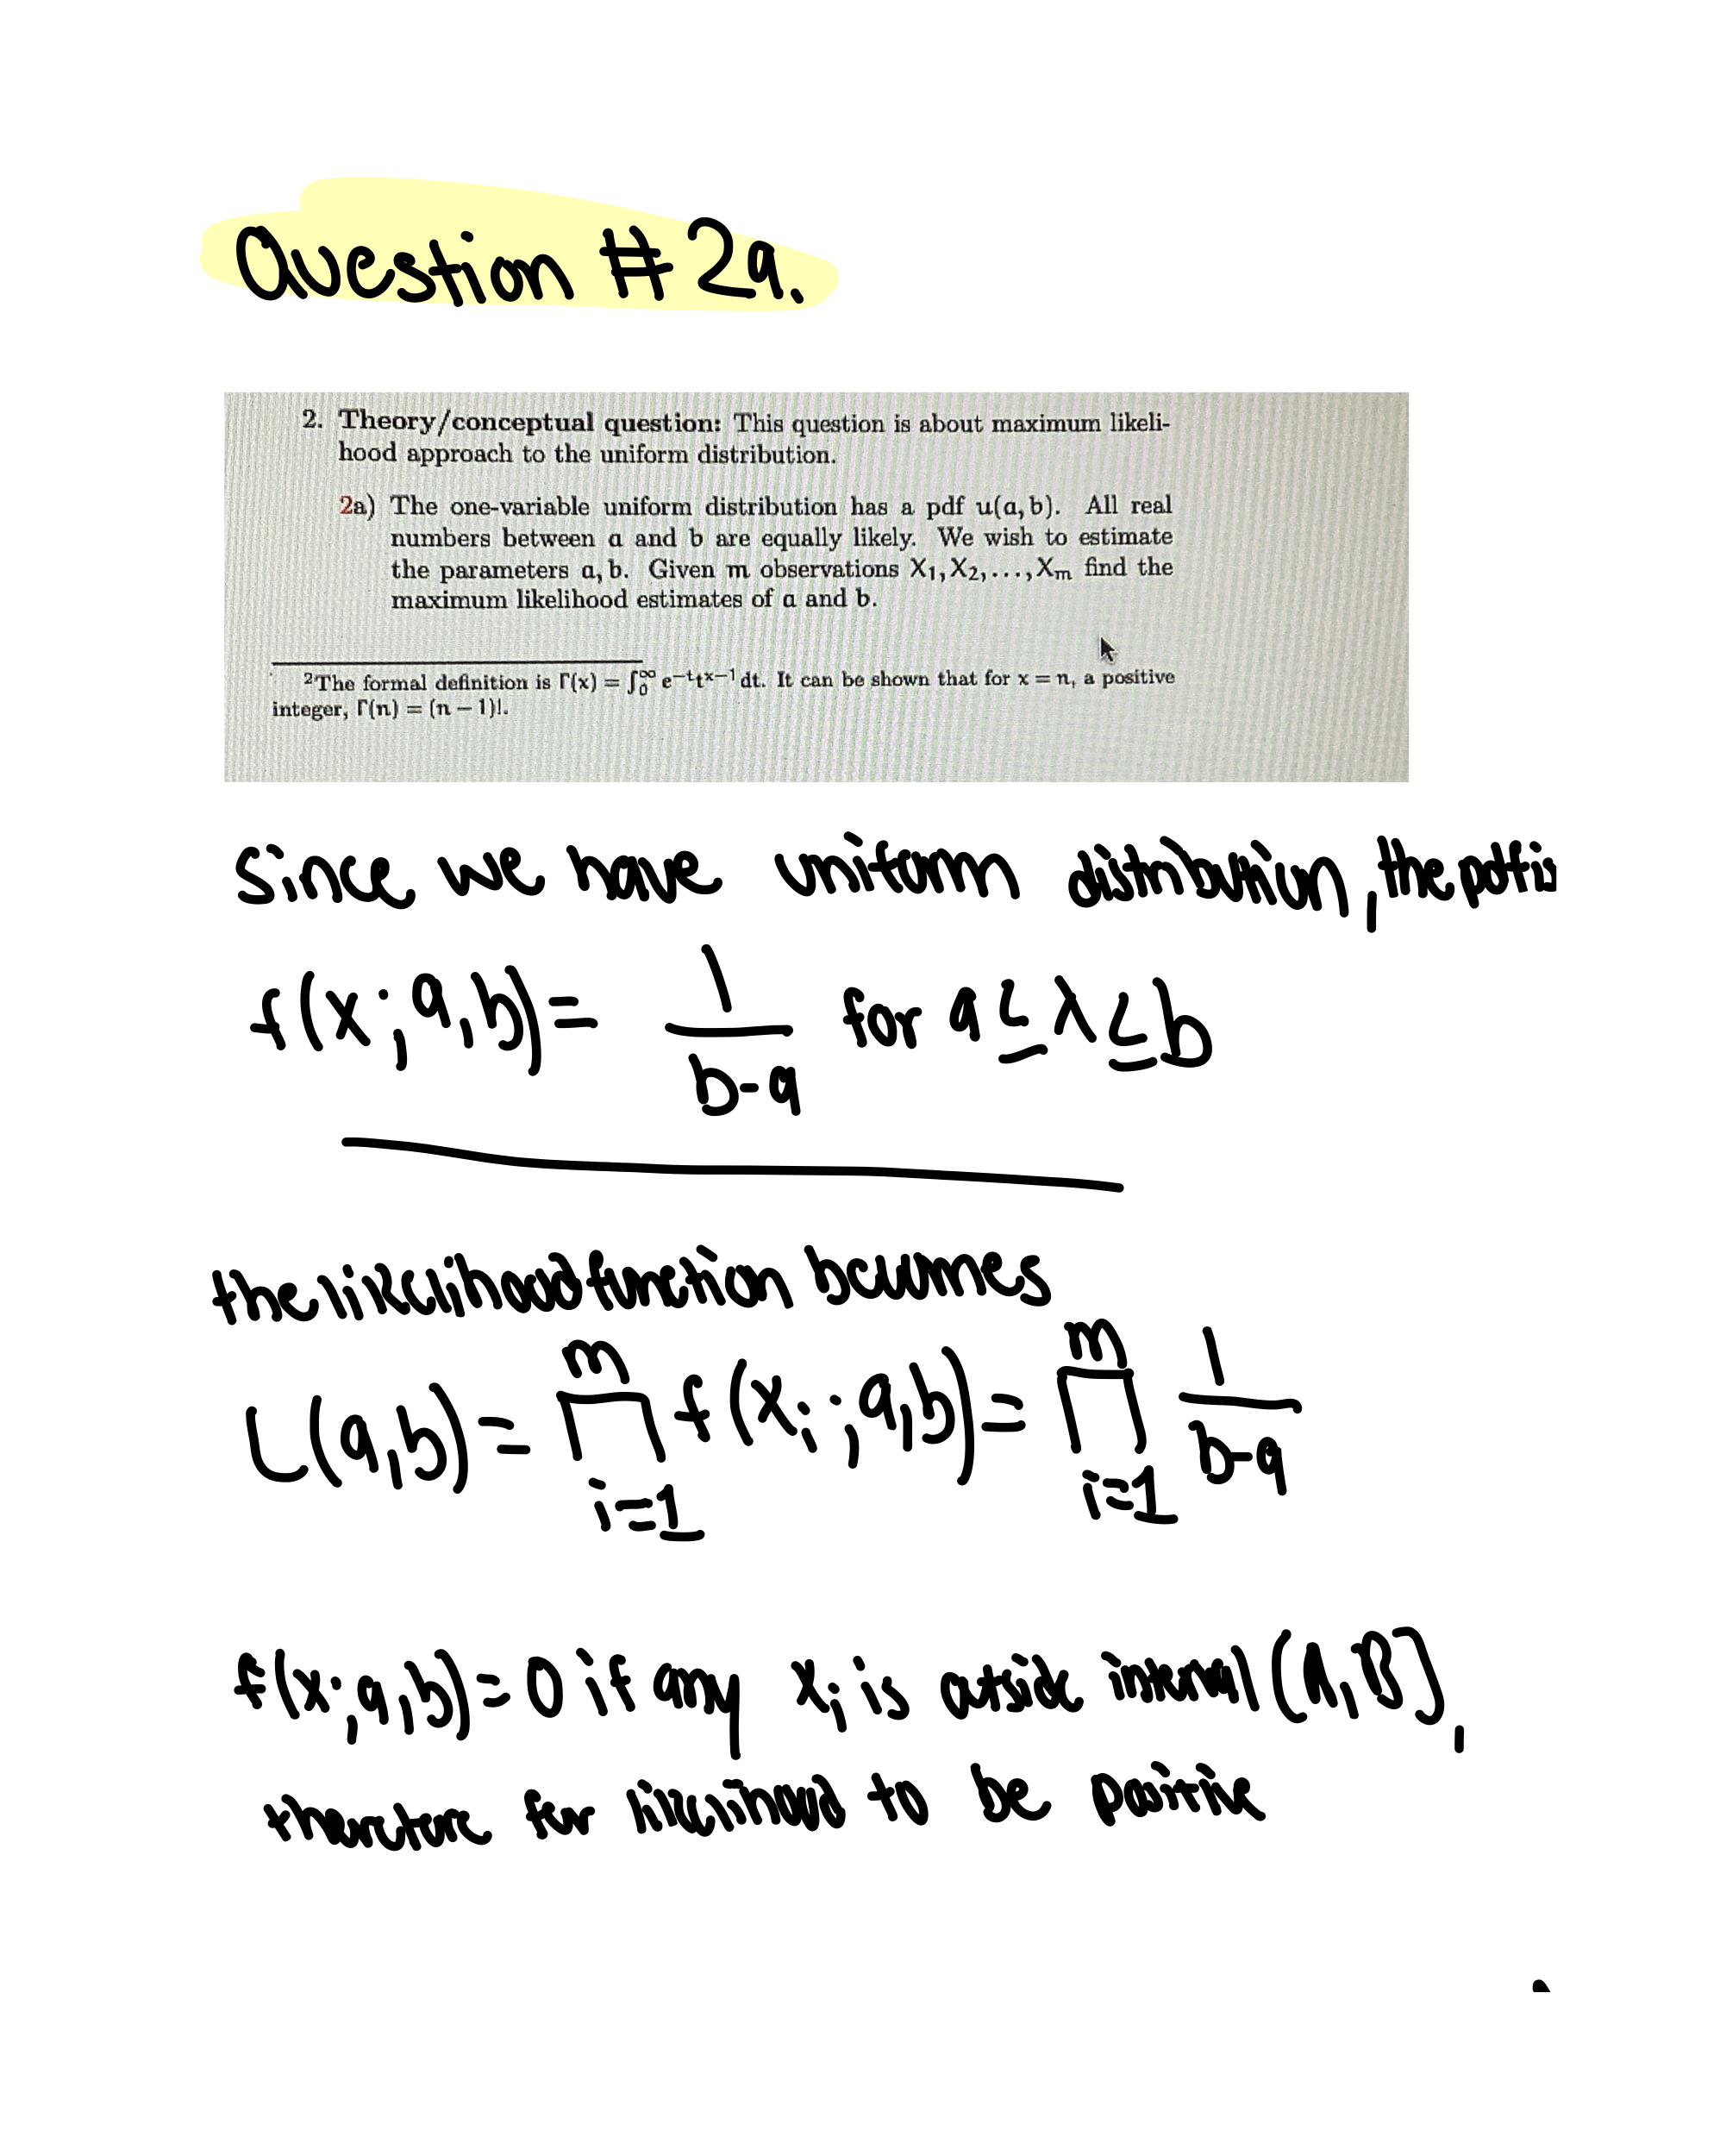 Question # 2a.
2. Theory/conceptual question: This question is about maximum likeli-
hood approach to the uniform distribution.
2a) The one-variable uniform distribution has a pdf u(a, b). All real
numbers between a and b are equally likely. We wish to estimate
the parameters a, b. Given m observations X₁, X₂, ..., Xₘ find the
maximum likelihood estimates of a and b.
²The formal definition is Γ(x) = ∫₀^∞ e^{−t}t^{x−1} dt. It can be shown that for x = n, a positive
integer, Γ(n) = (n − 1)!.
Since we have uniform distribution, the pdf is
f(x; a, b) = 1/(b-a) for a ≤ λ ≤ b
the likelihood function becomes
L(a,b) = ∏_{i=1}^{m} f(x_i; a,b) = ∏_{i=1}^{m} 1/(b-a)
f(x; a,b) = 0 if any x_i is outside interval (A, B],
therefore for likelihood to be positive